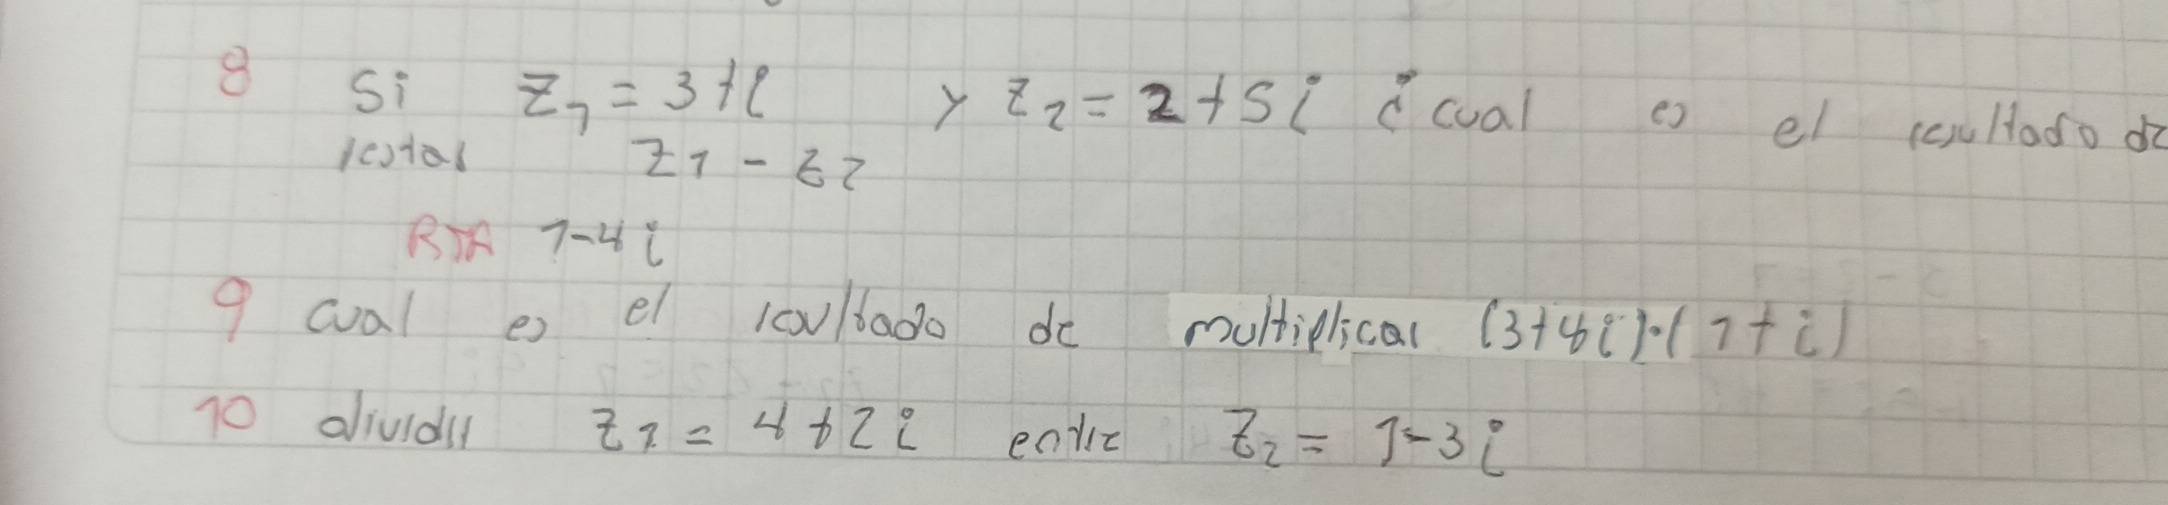 8 Si z₁ = 3+i y z₂ = 2+5i ¿cual es el resultado de
restar z1 - z2
RTA 1-4i
9 cual es el resultado de multiplicar (3+4i)·(1+i)
10 dividir z1 = 4+2i entre z₂ = 1-3i